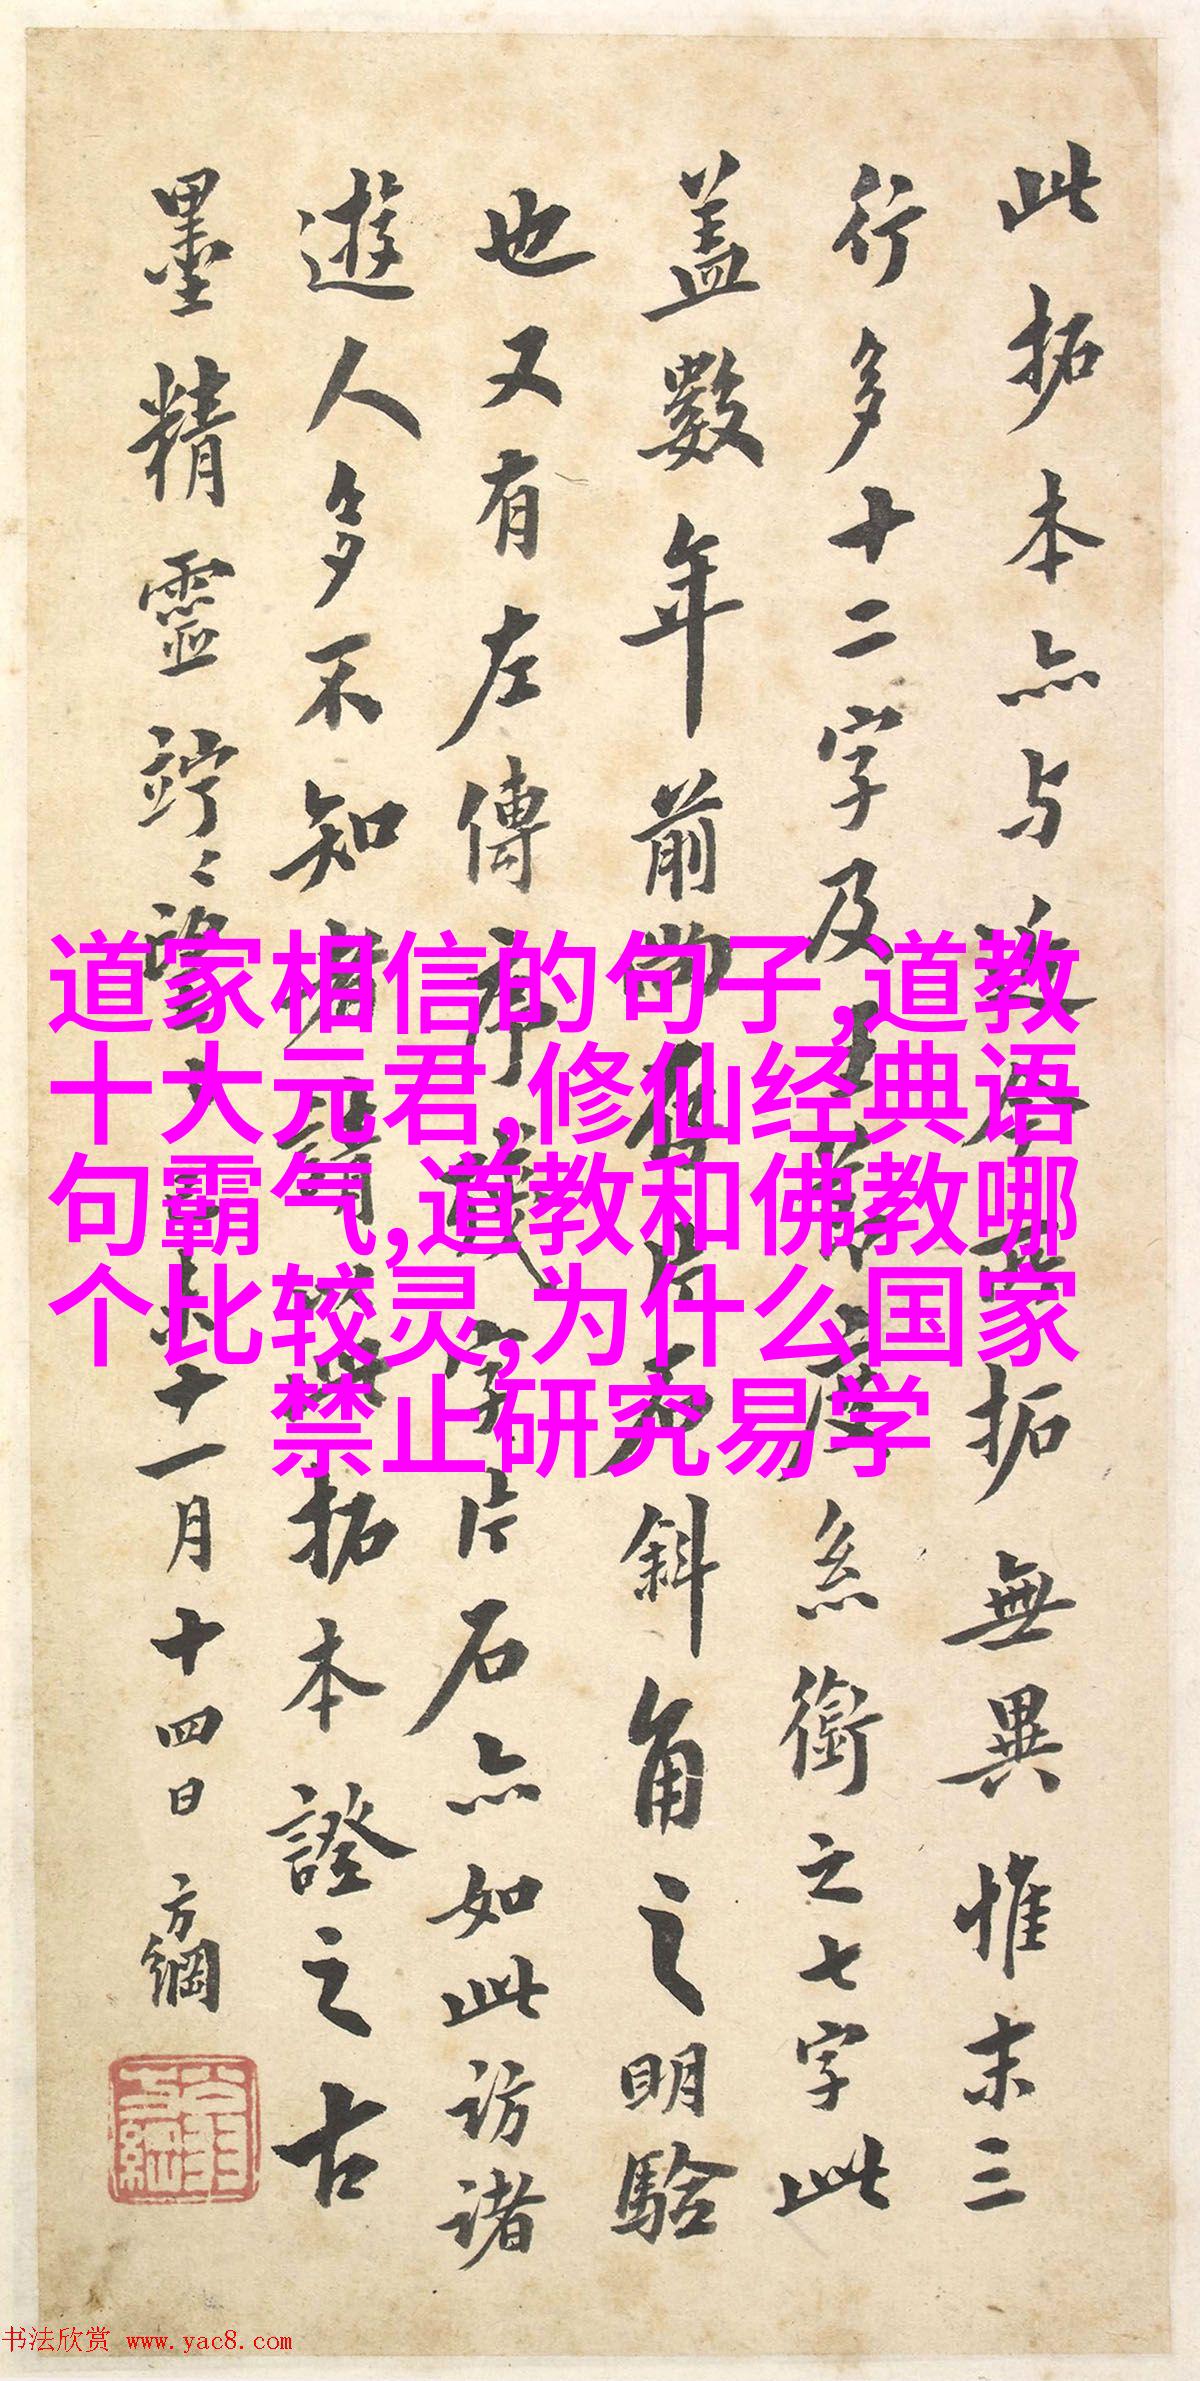 此拓本亦与拓無異惟末三
行多十二字及系銜之七字此
盖數年前尚斜角之明驗
也又有左傳字片石亦如此訪諸
遊人多不知者拓本證之古
墨精靈竚〻十一月十四日方綱
道家相信的句子,道教
十大元君,修仙经典语
句霸气,道教和佛教哪
个比较灵,为什么国家
禁止研究易学
书法欣赏 www.yac8.com